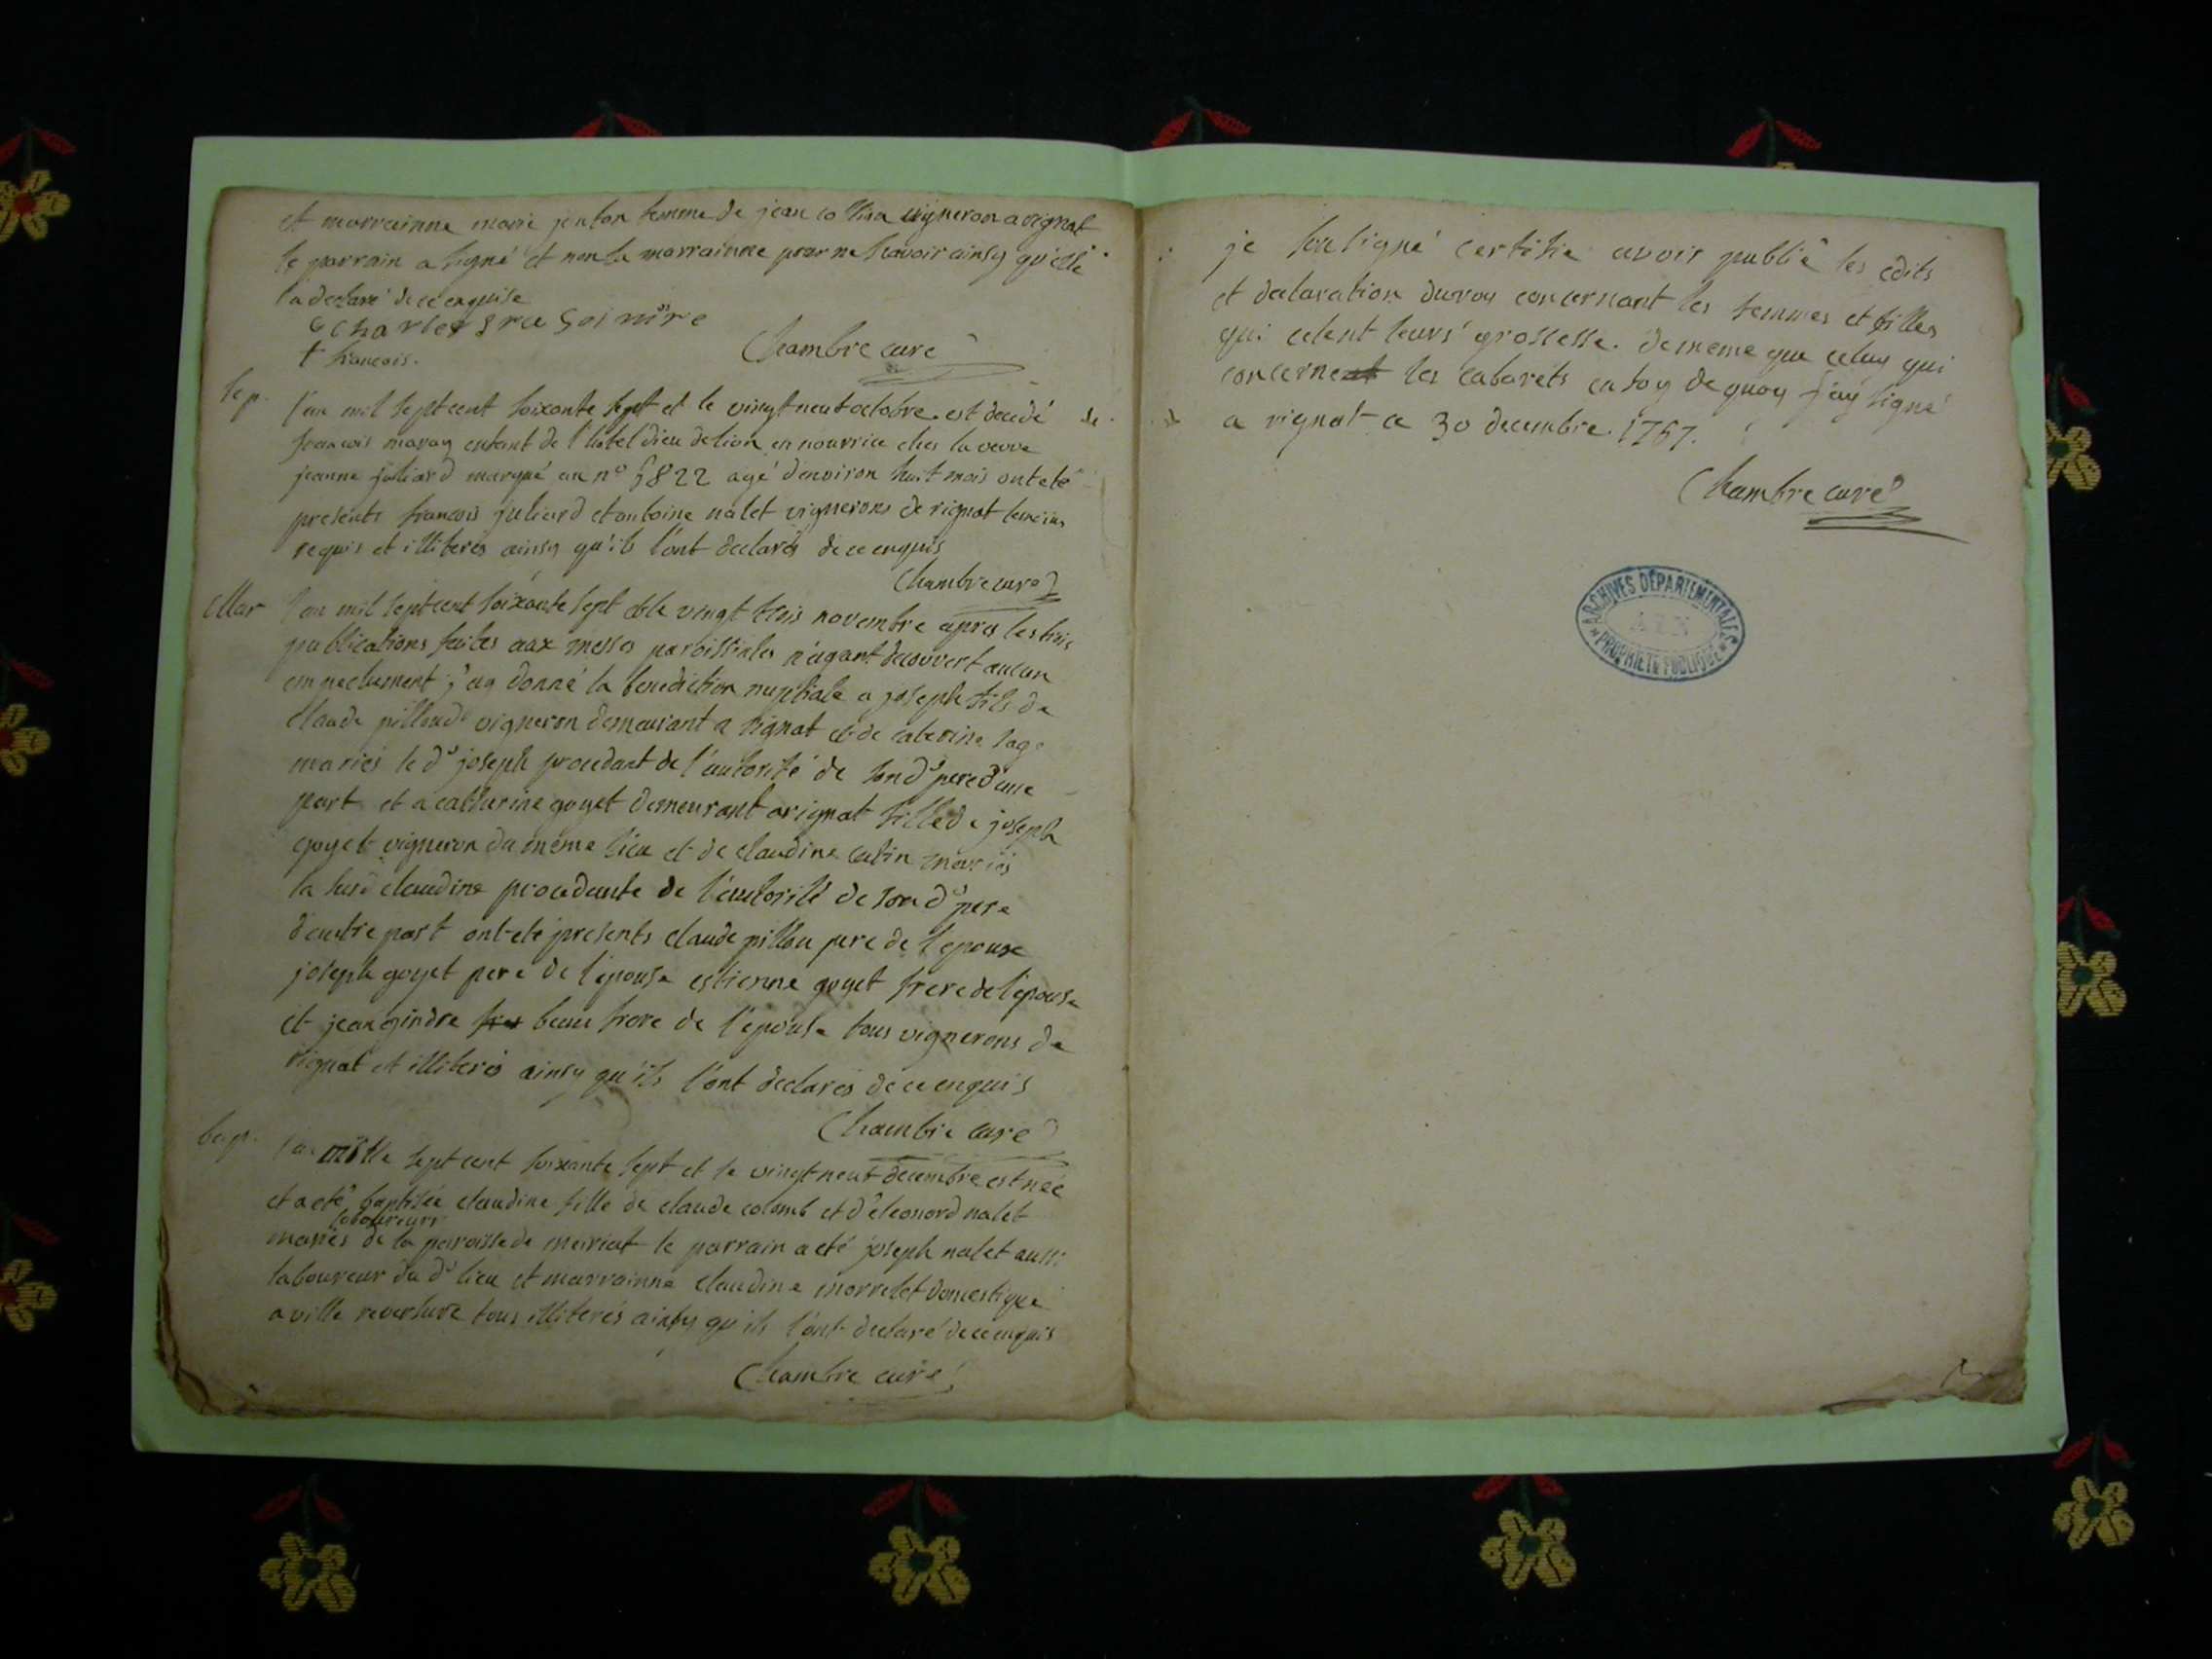 et marrainne marie jenton femme de jean collira vigneron a rignat
le parrain a signé et non la marrainne pour ne scavoir ainsy qu'elle
l'a declaré de ce enquise
charles
Chambre curé
+ francois.
sep.
l'an mil sept cent soixante sept et le vingt neuf octobre est decedé
francois maray enfant de l'hotel dieu de lion en nourrice ches la veuve
jeanne juliard marqué au n° 5822 agé d'environ huit mois ont eté
presents francois juliard et antoine nalet vignerons de rignat temoins
requis et illiterés ainsy qu'ils l'ont declarés de ce enquis
Chambre curé
Mar
l'an mil sept cent soixante sept et le vingt trois novembre apres les trois
publications faites aux messes paroissiales n'ayant decouvert aucun
empechement j'ay donné la benediction nuptiale a joseph fils de
claude pilloud vigneron demeurant a rignat et de caterine sage
mariés le dt joseph procedant de l'autorité de son dt pere d'une
part et a catherine goyet demeurant a rignat fille de joseph
goyet vigneron du même lieu et de claudine cutin mariés
la susd claudine procedante de l'autorité de son dt pere
d'autre part ont eté presents claude pillou pere de l'epoux
joseph goyet pere de l'epouse estienne goyet frere de l'epouse
et jean gindre beau frere de l'epouse tous vignerons de
rignat et illiterés ainsy qu'ils l'ont declarés de ce enquis
Chambre curé
bap.
l'an mille sept cent soixante sept et le vingt neuf decembre est née
et a eté baptisée claudine fille de claude colomb et d'eleonord nalet
laboureurs
mariés de la paroisse de meiriat le parrain a eté joseph nalet aussi
laboureur du dt lieu et marrainne claudine morrelet domestique
a ville reversure tous illiterés ainsy qu'ils l'ont declaré de ce enquis
Chambre curé
je soussigné certifie avoir publié les edits
et declaration du roy concernant les femmes et filles
qui celent leurs grossesse. de meme que celuy qui
concerne les cabarets en foy de quoy j'ay signé
a rignat ce 30 decembre. 1767.
Chambre curé
ARCHIVES DÉPARTEMENTALES
AIN
PROPRIÉTÉ PUBLIQUE